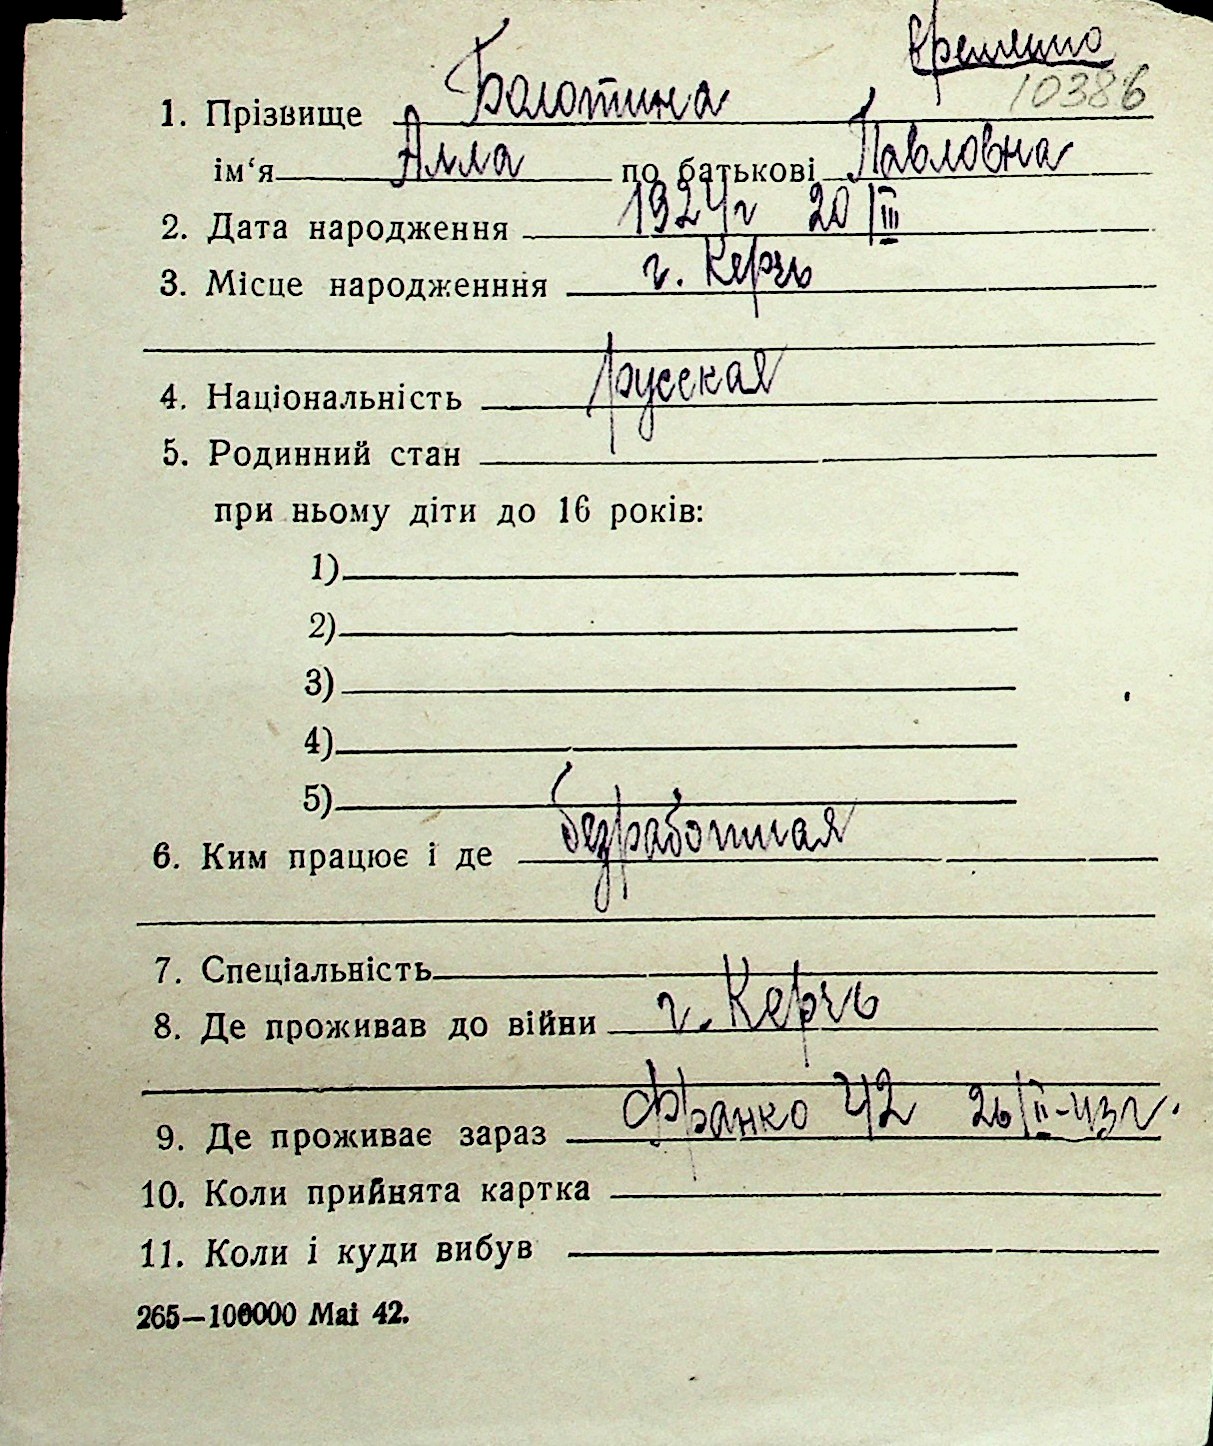 временно
10386
1. Прізвище Болотина
ім‘я Алла по батькові Павловна
2. Дата народження 1924г 20/III
3. Місце народженння г. Керчь
4. Національність русская
5. Родинний стан
при ньому діти до 16 років:
1)
2)
3)
4)
5)
6. Ким працює і де безработная
7. Спеціальність
8. Де проживав до війни г. Керчь
9. Де проживає зараз Франко 42 26/II-43г.
10. Коли прийнята картка
11. Коли і куди вибув
265—100000 Mai 42.